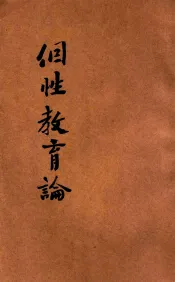 個性教育論